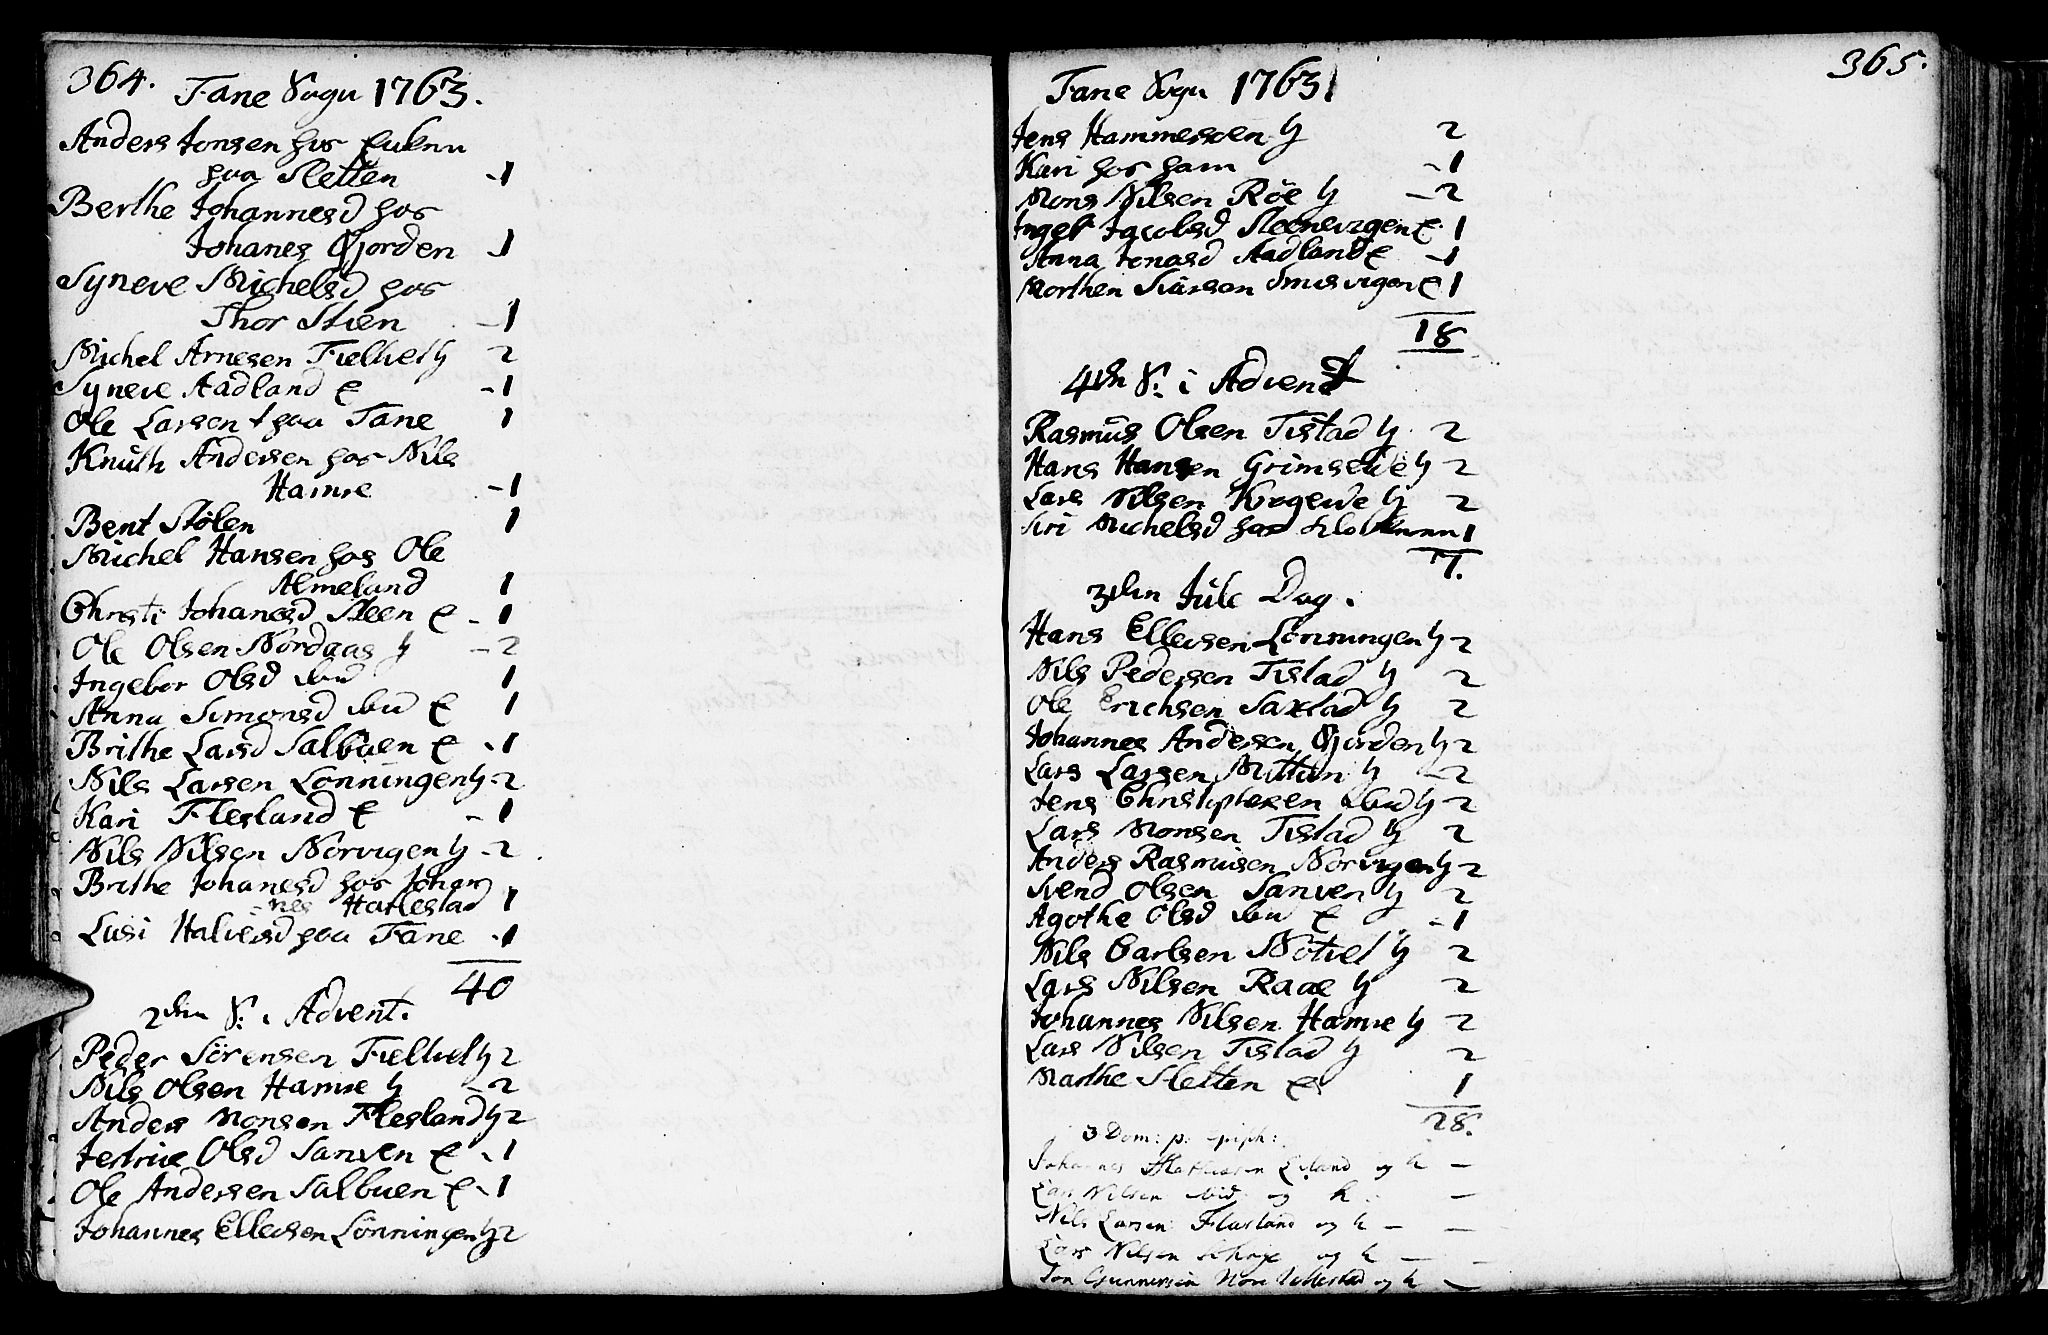 364.
Fane Sogn 1763.
Anders Jonsen hos Enken
paa Sletten - 1
Berthe Johannesd hos
Johanes Gjorden - 1
Syneve Michelsd hos
Thor Stien - 1
Michel Arnesen Fieldvet h 2
Syneve Aadland E - 1
Ole Larsen paa Fane 1
Knuth Andersen hos Nils
Hamre - 1
Bent Stölen 1
Michel Hansen hos Ole
Almeland 1
Christi Johanesd Steen E - 1
Ole Olsen Nordaas h - 2
Ingebor Olsd ibid 1
Anna Simonsd ibid E 1
Brithe Larsd Salbuen E - 1
Nils Larsen Lönningen h - 2
Kari Flesland E - 1
Nils Nilsen Norvigen h - 2
Brithe Johanesd hos Johan
nes Harlestad 1
Lusi Halversd paa Fane - 1
40
2den S. i Advent.
Peder Sörensen Fieldvet h 2
Nils Olsen Hamre h - 2
Anders Monsen Flesland h 2
Jertrue Olsd Sanven E - 1
Ole Andersen Salbuen E - 1
Johannes Ellevsen Lönningen h 2
365.
Fane Sogn 1763
Jens Hammersen h 2
Kari hos ham - 1
Mons Nilsen Röe h - 2
Ingeb Jacobsd Steenevigen E 1
Anna Jonasd Aadland E - 1
Morthen Siursen Smisvigen E 1
18
4de S. i Advent
Rasmus Olsen Tistad h 2
Hans Hansen Grimseide h 2
Lars Nilsen Krogeide h 2
Siri Michelsd hos Klokkeren 1
7.
3den Jule Dag.
Hans Ellevsen Lönningen h 2
Nils Pedersen Tistad h 2
Ole Erichsen Saxtad h 2
Johannes Andersen Gjorden h 2
Lars Larsen Mittun h - 2
Jens Christophersen ibid h 2
Lars Monsen Tistad h 2
Anders Rasmusen Norvigen h 2
Svend Olsen Sanven h 2
Agothe Olsd ibid E - 1
Nils Carlsen Nötvet h 2
Lars Nilsen Raae h 2
Johannes Nilsen Hamre h 2
Lars Nilsen Tistad h 2
Marthe Sletten E 1
28.
3 Dom: p. epiph:
Johannes Mathiasen og h —
Lars Nilsen ibid: og h —
Nils Larsen Flæsland og h — —
Lars Nilsen og h — —
Jon Gunnersen Nore og h —